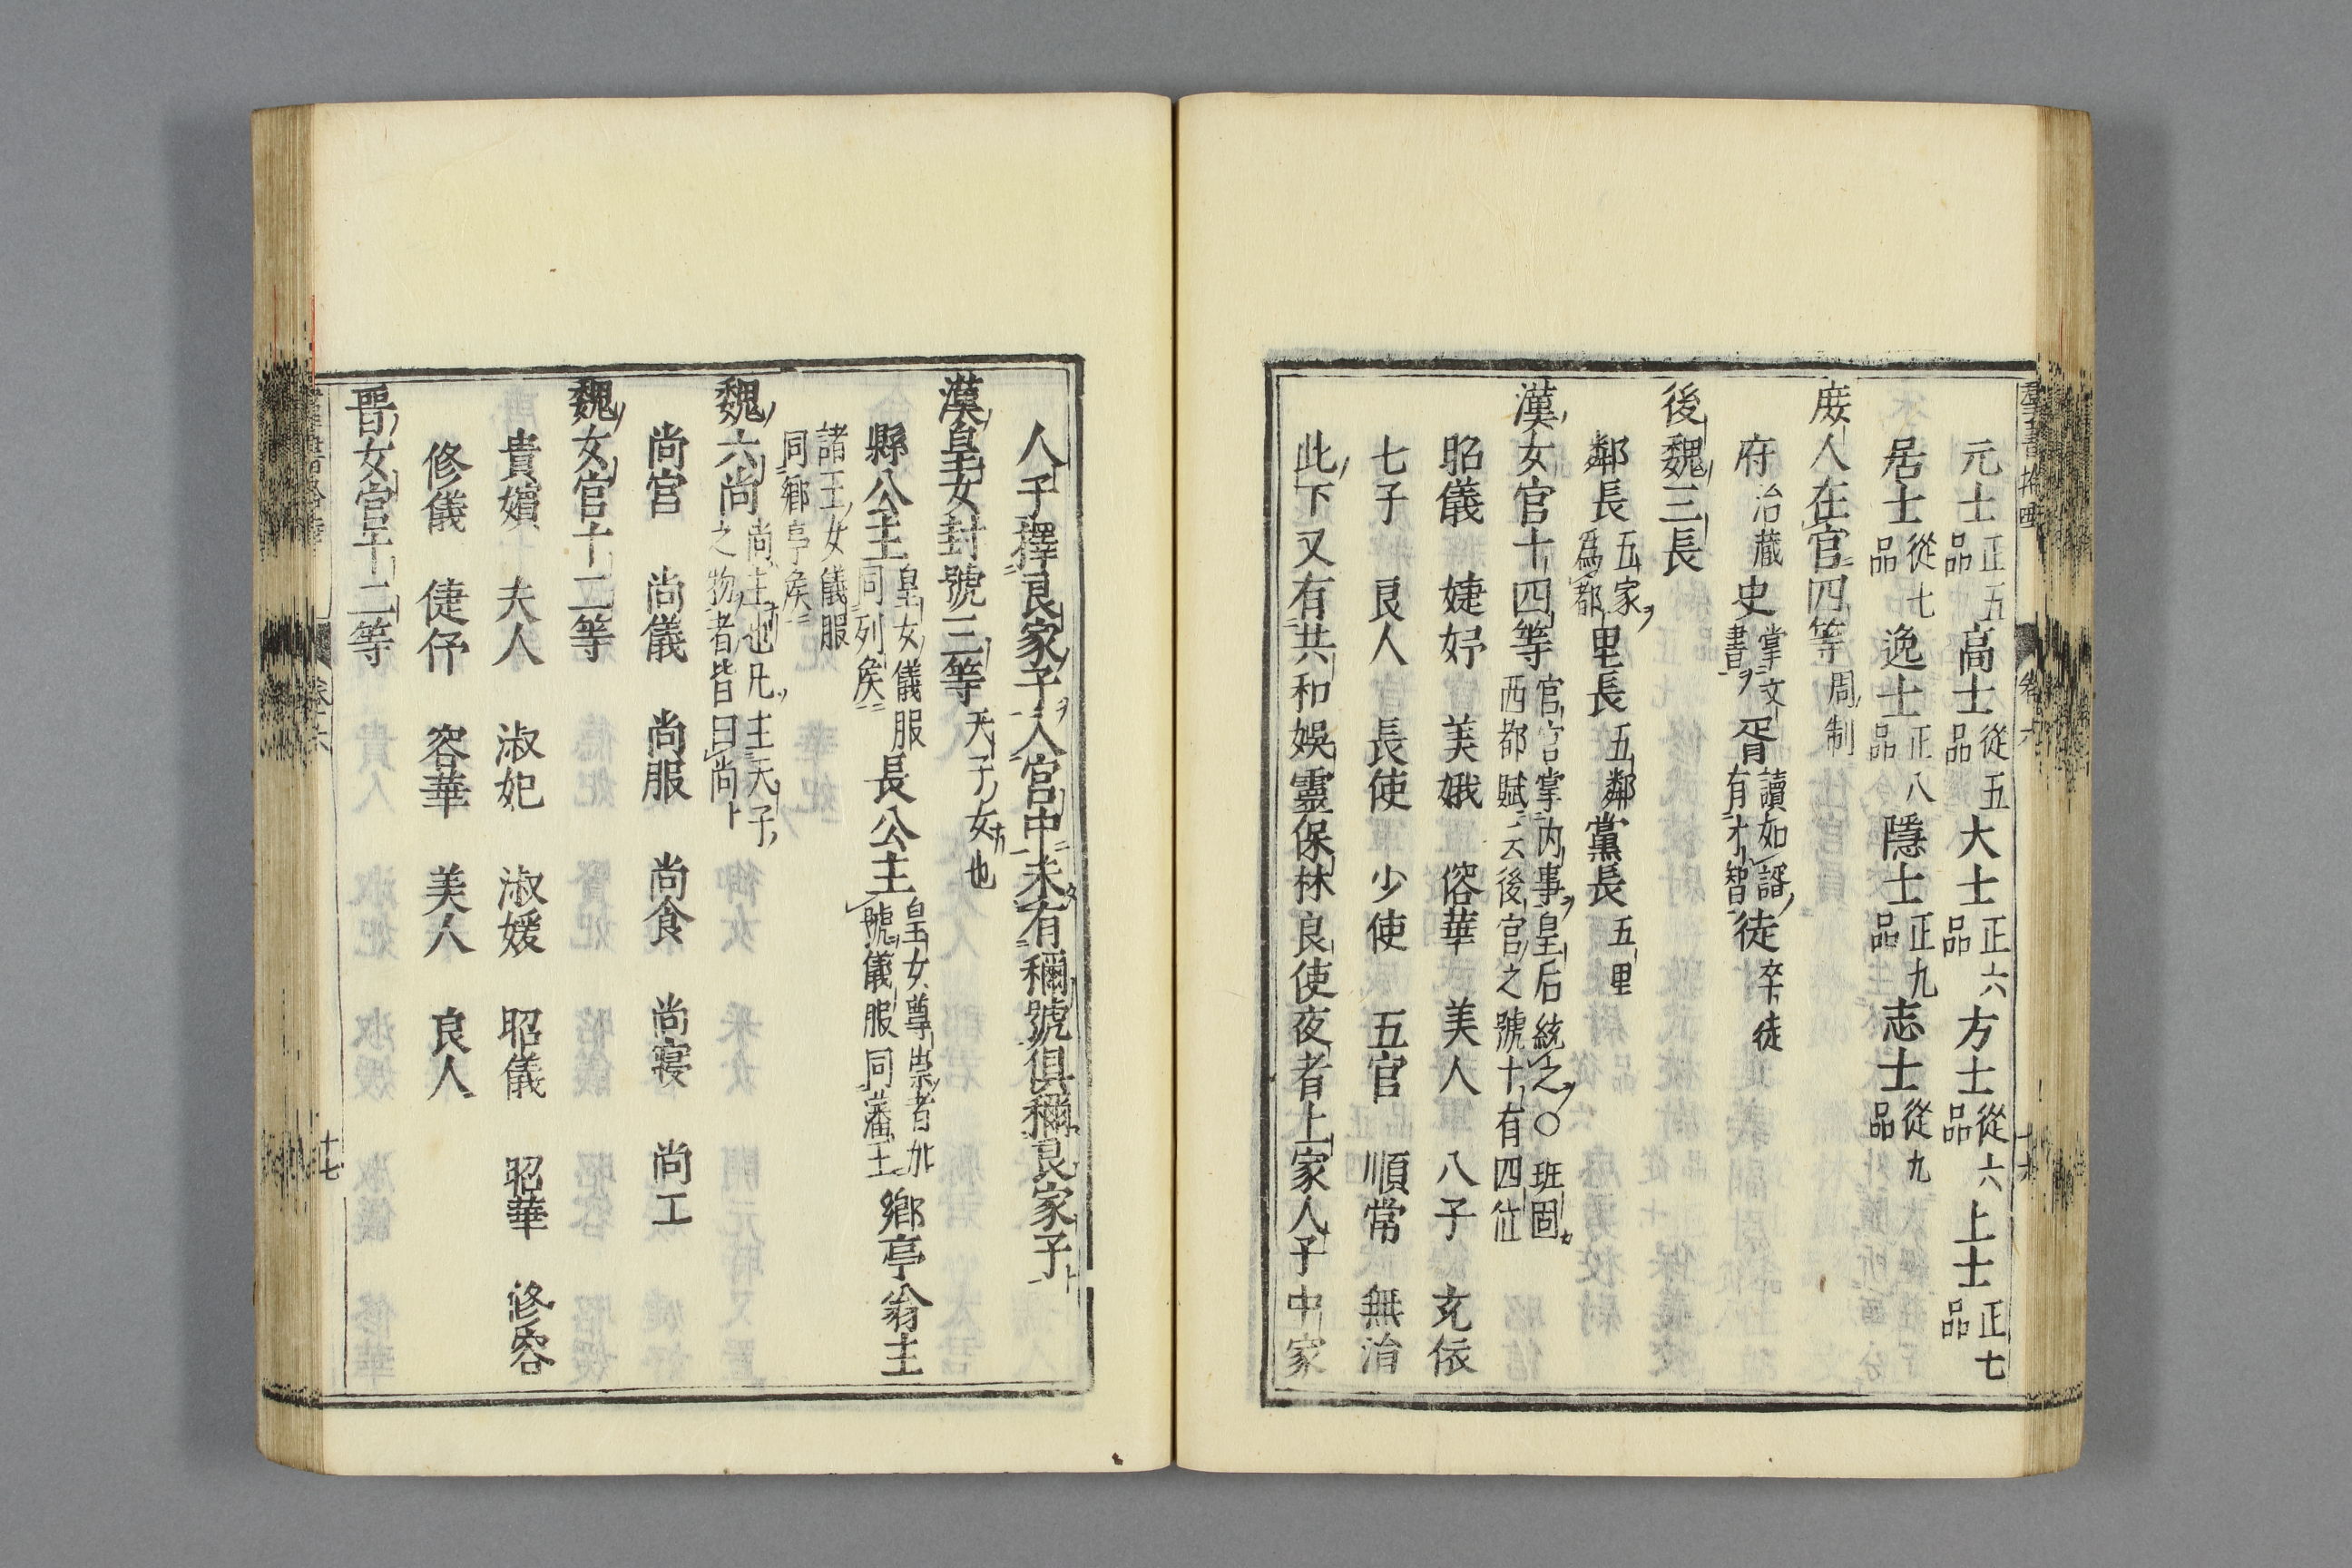 元士正五品高士從五品大士正六品方士從六品上士正七品
居士從七品逸士正八品隱士正九品志士從九品
庻人在官四等周制
府治藏史掌文書ヲ胥讀如諝有才智徒卒徒
後魏三長
鄰長五家爲鄰里長五鄰黨長五里
漢女官十四等官官掌内事皇后統之〇班固西都賦ニ云後官之號十有四位
昭儀　婕妤　美娥　傛華　美人　八子　充依
七子　良人　長使　少使　五官　順常　無治
此下又有共和娯靈保林良使夜者上家人子中家
人子擇良家子ヲ入宮中未有稱號俱稱良家子ト
漢皇女封號三等天子ノ女也
縣公主皇女儀服同列矦長公主皇女尊崇者加號儀服同藩王鄉亭翁主
諸王女儀服同鄉亭矦
魏六尚尚主也凡主天子之物者皆曰尚ト
尚官　尚儀　尚服　尚食　尚寢　尚工
魏女官十二等
貴嬪　夫人　淑妃　淑媛　昭儀　昭華　修容
修儀　倢伃　容華　美人　良人
晋女官十二等
十七